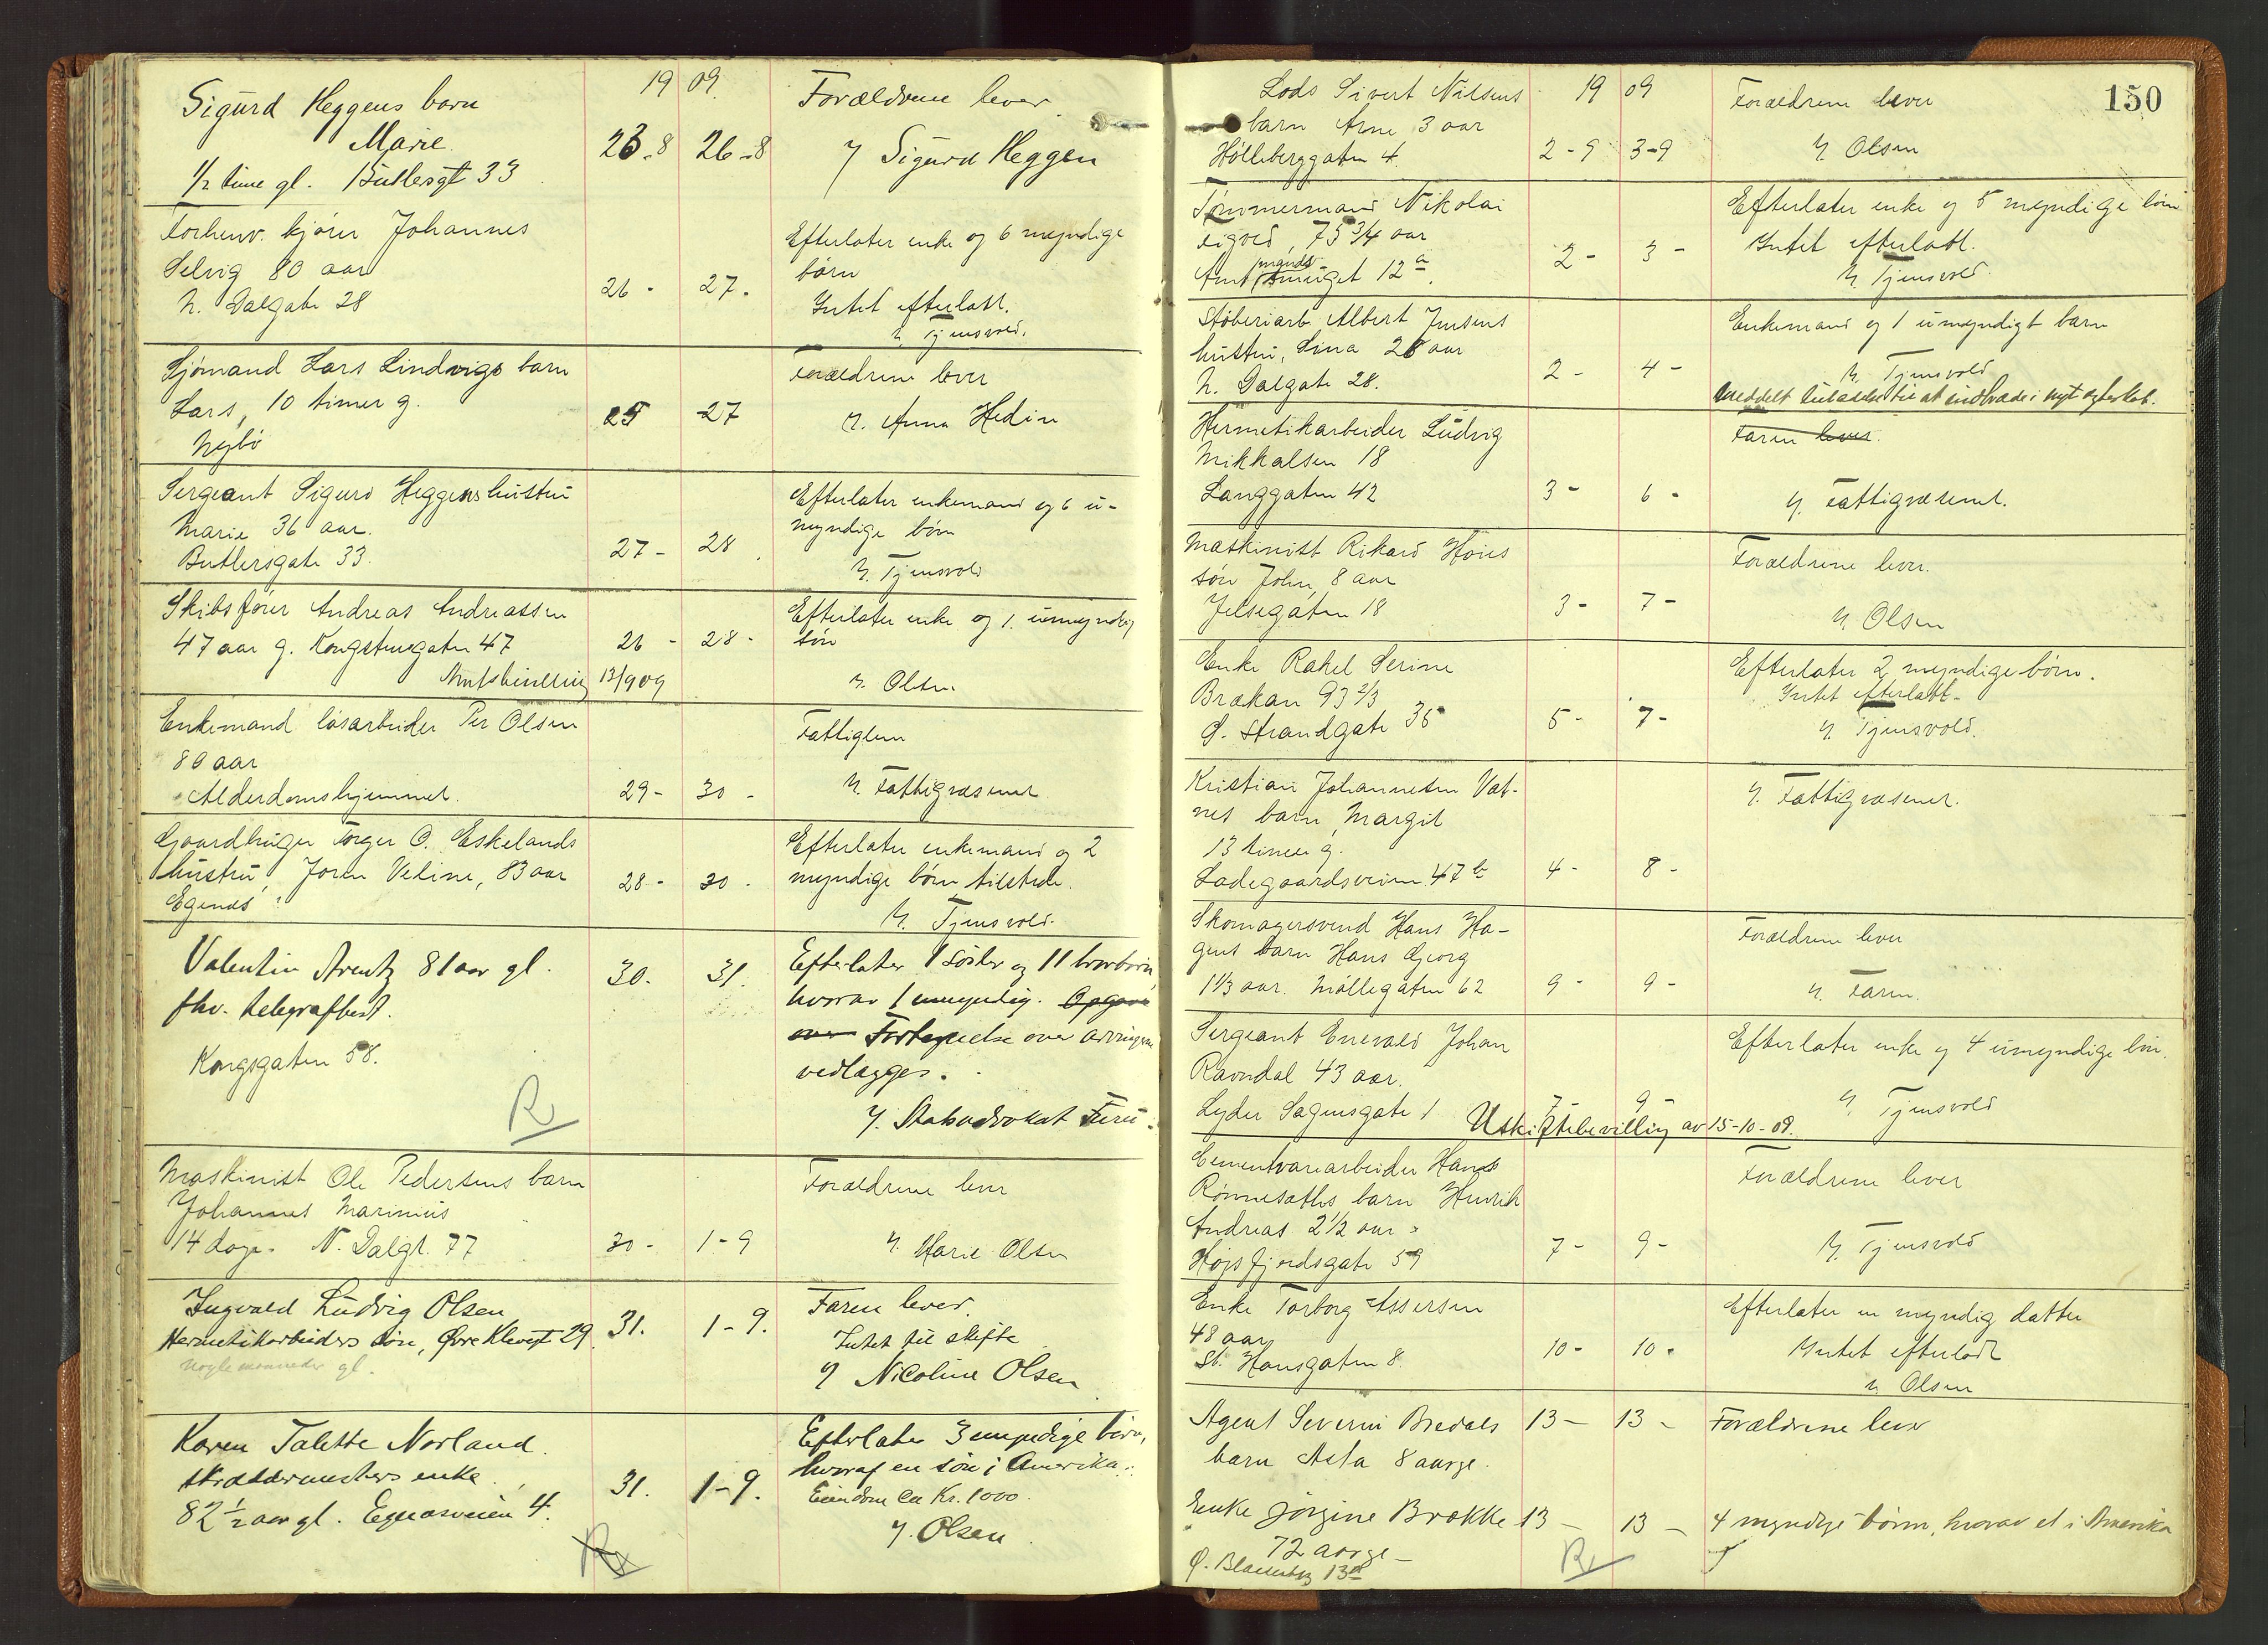 19 09.
Sigurd Heggens barn
Marie.
1/2 time gl. Butlersgt 33
23-8 26-8
Forældrene lever
/ Sigurd Heggen
Forhenv. kjører Johannes
Selvig 80 aar
N. Dalgate 28
26 - 27 -
Efterlater enke og 6 myndige
børn
Intet efterlatt.
/ Tjensvold.
Sjømand Lars Lindvigs barn
Lars, 10 timer g.
Nybø
25 -27
Forældrene lever
/. Anna Hedin
Sergeant Sigurd Heggens hustru
Marie 36 aar.
Butlersgate 33.
27 - 28
Efterlater enkemand og 6 u-
myndige børn
/. Tjensvold
Skibsfører Andreas Andreassen
47 aar g. Kongstensgaten 47
26 - 28 -
13/9 09
Efterlater enke og 1. umyndig
søn
/. Olsen.
Enkemand løsarbeider Per Olsen
80 aar
Alderdomshjemmet.
29 - 30 -
Fattiglem
/. Fattigvæsenet
Gaardbruger Torger O. Eskelands
hustru, Joren Veline, 83 aar
Egenes
28 - 30 -
Efterlater enkemand og 2
myndige børn, tilstede.
/. Tjensvold.
Valentin Arentz 81 aar gl.
fhv. telegrafbest.
Kongsgaten 58.
30. 31.
Efterlater 1 søster og 11 brorbørn
hvorav 1 umyndig. Opgave
over Fortegnelse over arvingene
vedlægges.
/. Statsadvokat Furu.
R
Maskinist Ole Pedersens barn
Johannes Marinius
14 dage. N. Dalgt. 77
30 - 1-9
Forældrene lever
/. Marie Olsen
Ingvald Ludvig Olsen
Hermetikarbeiders søn, Øvre Klevegt 29.
nogle maaneder gl.
31. 1-9.
Faren lever.
Intet til skifte
/ Nicoline Olsen
Karen Talette Norland.
skræddermesters enke
82 1/2 aar gl. Egenæsveien 4.
31. 1-9.
Efterlater 3 myndige børn,
hvoraf en søn i Amerika.
Eiendom ca Kr. 1000
/. Olsen
150
19 09
Lods Sivert Nilsens
barn Arne 3 aar
Hølleberggaten 4.
2-9 3-9
Forældrene lever
/. Olsen
Tømmermand Nikolai
Eigved, 75 3/4 aar
Amtmandssmuget 12 a.
2 - 3 -
Efterlater enke og 5 myndige børn
Intet efterlatt.
/. Tjensvold.
Støberiarb. Albert Jensens
hustru, Sina 28 aar
N. Dalgate 28.
2 - 4 -
Enkemand og 1 umyndigt barn
/. Tjensvold
meddelt tilladelse til at indtræde i nyt egteskab.
Hermetikarbeider Ludvig
Mikkalsen 18
Langgaten 42
3 - 6 -
Faren lever.
/. Fattigvæsenet.
Maskinist Rikard Høies
søn John, 8 aar
Jelsegaten 18
3 - 7 -
Forældrene lever.
/. Olsen
Enke Rakel Serine
Brækan 93 2/3
Ø. Strandgate 35
5 - 7 -
Efterlater 2 myndige børn.
Intet efterlatt.
/. Tjensvold.
Kristian Johannesen Vat-
nes barn, Margit
13 timer g.
Ladegaardsveien 47 b
4 - 8 -
/. Fattigvæsenet.
Skomagersvend Hans Ha-
gens barn Hans Georg
1 1/3 aar. Møllegaten 62
9 - 9 -
Forældrene lever
/. Faren.
Sergeant Enevald Johan
Ravndal 43 aar.
Lyder Sagensgate 1
7 - 9 -
Efterlater enke og 4 umyndige børn.
/. Tjensvold
Uskiftebevilling av 15-10-09.
Cementvarearbeider Hans
Rønnesæths barn Henrik
Andreas 2 1/2 aar.
Høgsfjordsgate 59
7 - 9 -
Forældrene lever
/. Tjensvold
Enke Torborg Assersen
48 aar
St. Hansgaten 8.
10 - 10 -
Efterlater en myndig datter
Intet efterladt
/. Olsen
Agent Severin Bredals
barn Asta 8 aarge.
13 - 13 -
Forældrene lever
Enke Jørgine Brekke
72 aarge -
Ø. Blaasenbg 13 a
13 - 13 -
4 myndige børn, hvorav et i Amerika
R